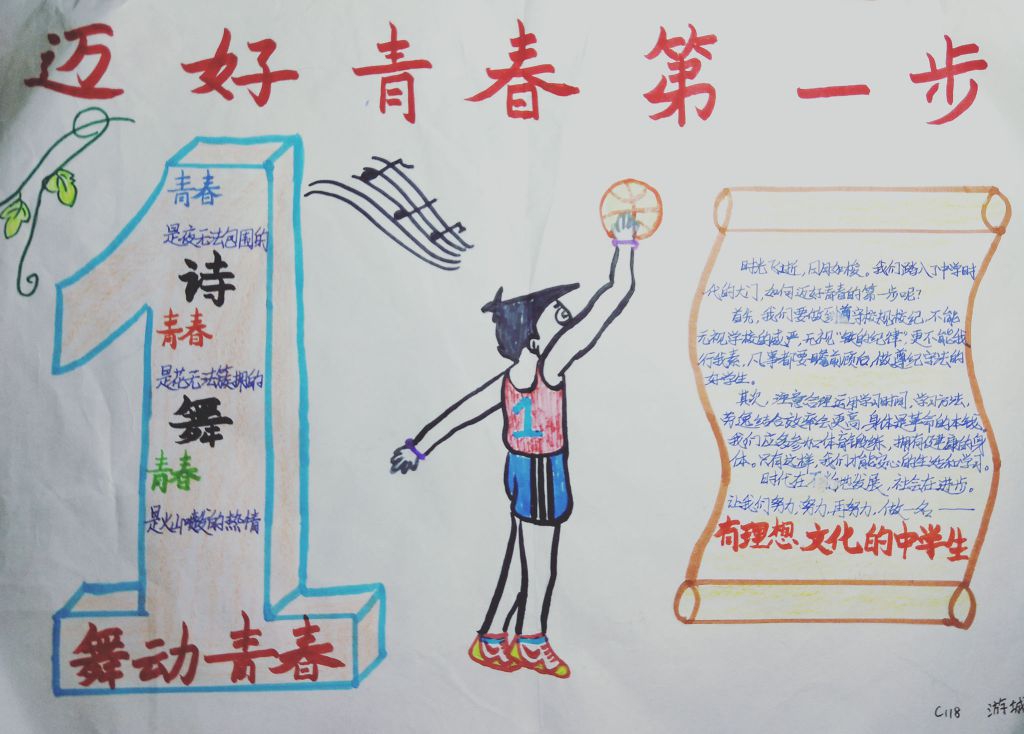 迈好青春第一步
青春
是夜无法包围的
诗
青春
是花无法簇拥的
舞
青春
是火山喷的热情
舞动青春
1
时光飞逝，日月如梭。我们踏入了中学时
代的大门，如何迈好青春的第一步呢？
首先，我们要做到遵守校规校纪，不能
无视学校的威严，无视“铁的纪律”，更不能我
行我素，凡事都要瞻前顾后，做遵纪守法的
好学生。
其次，注意合理运用学习时间，学习方法，
劳逸结合效率会更高，身体是革命的本钱。
我们应多参加体育锻炼，拥有健康的身
体。只有这样，我们才能安心的生活和学习。
时代在不断地发展，社会在进步。
让我们努力，努力，再努力，做一名——
有理想、文化的中学生
C118 游城